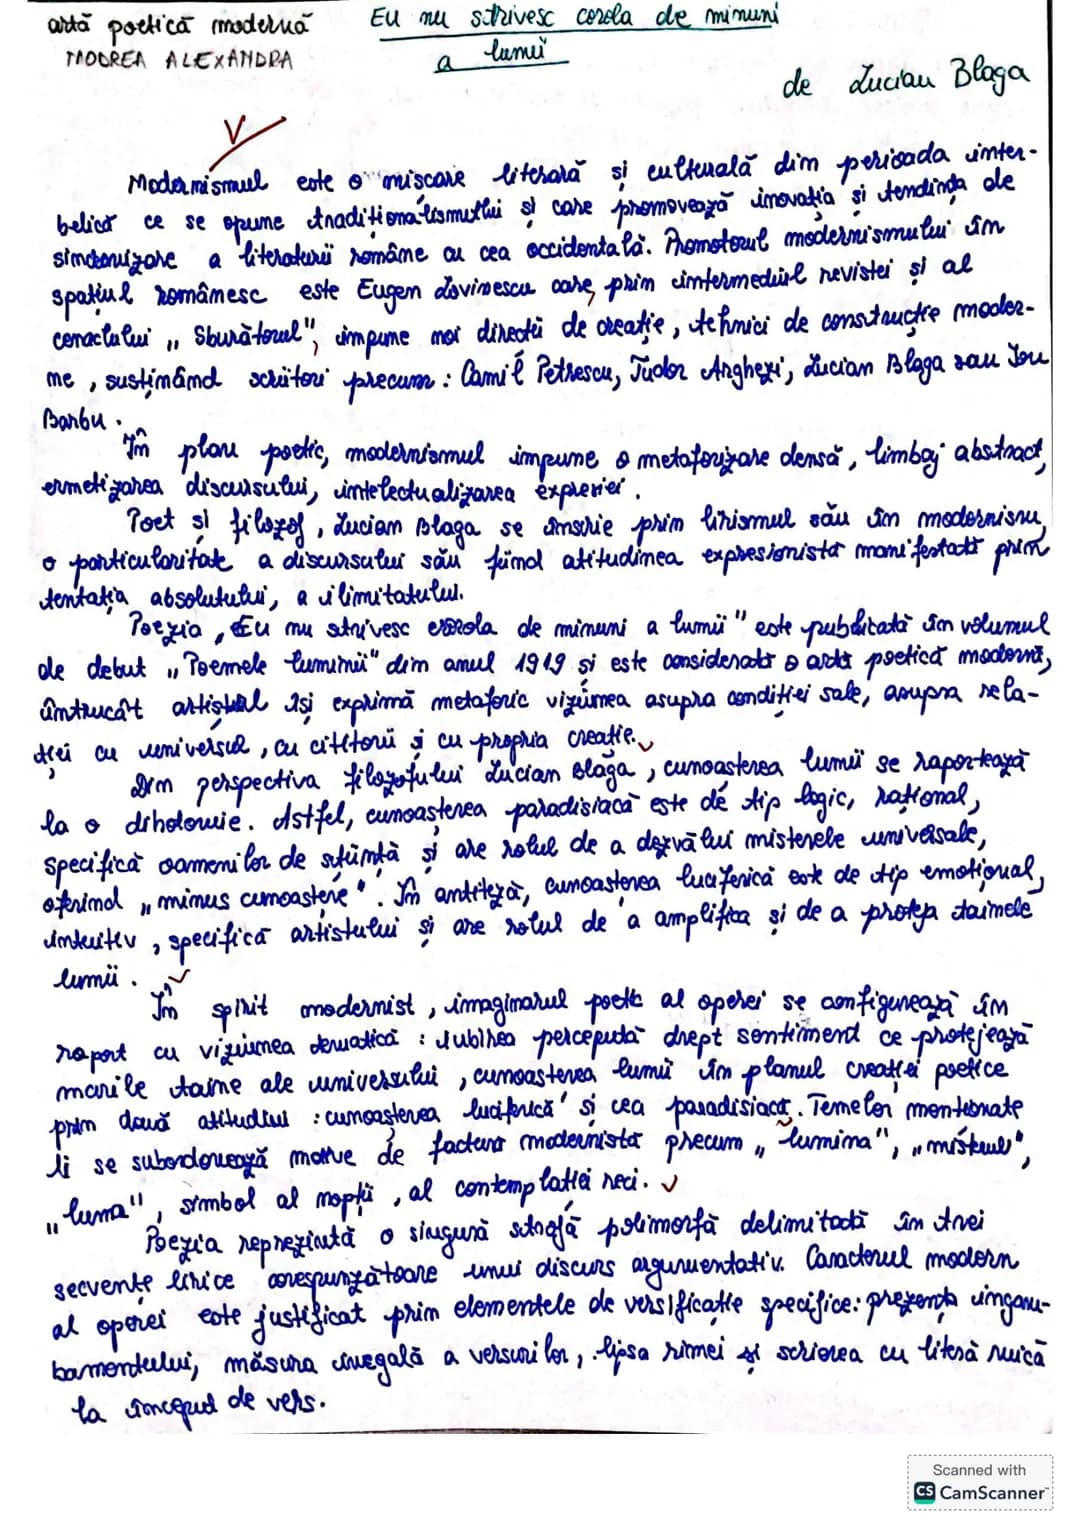 artă poetică modernă
TNODREA ALEXANDRA
Eu nu strivesc corola de minuni
a lumii
de Lucian Blaga
V
Modernismul este o mișcare literară și culturală din perioada inter-
belică ce se opune tradiționalismului și care promovează inovația și tendința de
sincronizare a literaturii române cu cea occidentală. Promotorul modernismului în
spațiul românesc este Eugen Lovinescu care, prin intermediul revistei și al
cenaclului „Sburătorul", impune noi direcții de creație, tehnici de construcție moder-
ne, susținând scriitori precum: Camil Petrescu, Tudor Arghezi, Lucian Blaga sau Ion
Barbu.
În plan poetic, modernismul impune o metaforizare densă, limbaj abstract,
ermetizarea discursului, intelectualizarea expresiei.
Poet și filozof, Lucian Blaga se înscrie prin lirismul său în modernism,
o particularitate a discursului său fiind atitudinea expresionistă manifestată prin
tentația absolutului, a ilimitatului.
Poezia „Eu nu strivesc corola de minuni a lumii" este publicată în volumul
de debut „Poemele luminii" din anul 1919 și este considerată o artă poetică modernă,
întrucât artistul își exprimă metaforic viziunea asupra condiției sale, asupra rela-
ției cu universul, cu cititorii și cu propria creație.
Din perspectiva filozofului Lucian Blaga, cunoașterea lumii se raportează
la o dihotomie. Astfel, cunoașterea paradisiacă este de tip logic, rațional,
specifică oamenilor de știință și are rolul de a dezvălui misterele universale,
oferind „minus cunoaștere". În antiteză, cunoașterea luciferică este de tip emoțional,
intuitiv, specifică artistului și are rolul de a amplifica și de a proteja tainele
lumii.
În spirit modernist, imaginarul poetic al operei se configurează în
raport cu viziunea tematică: iubirea percepută drept sentiment ce protejează
marile taine ale universului, cunoașterea lumii în planul creației poetice
prin două atitudini: cunoașterea luciferică și cea paradisiacă. Temelor menționate
li se subordonează motive de factură modernistă precum „lumina", „misterul",
„luna", simbol al nopții, al contemplației reci.
Poezia reprezintă o singură strofă polimorfă delimitată în trei
secvențe lirice corespunzătoare unui discurs argumentativ. Caracterul modern
al operei este justificat prin elementele de versificație specifice: prezența ingam-
bamentului, măsura inegală a versurilor, lipsa rimei și scrierea cu literă mică
la început de vers.
Scanned with
CS CamScanner